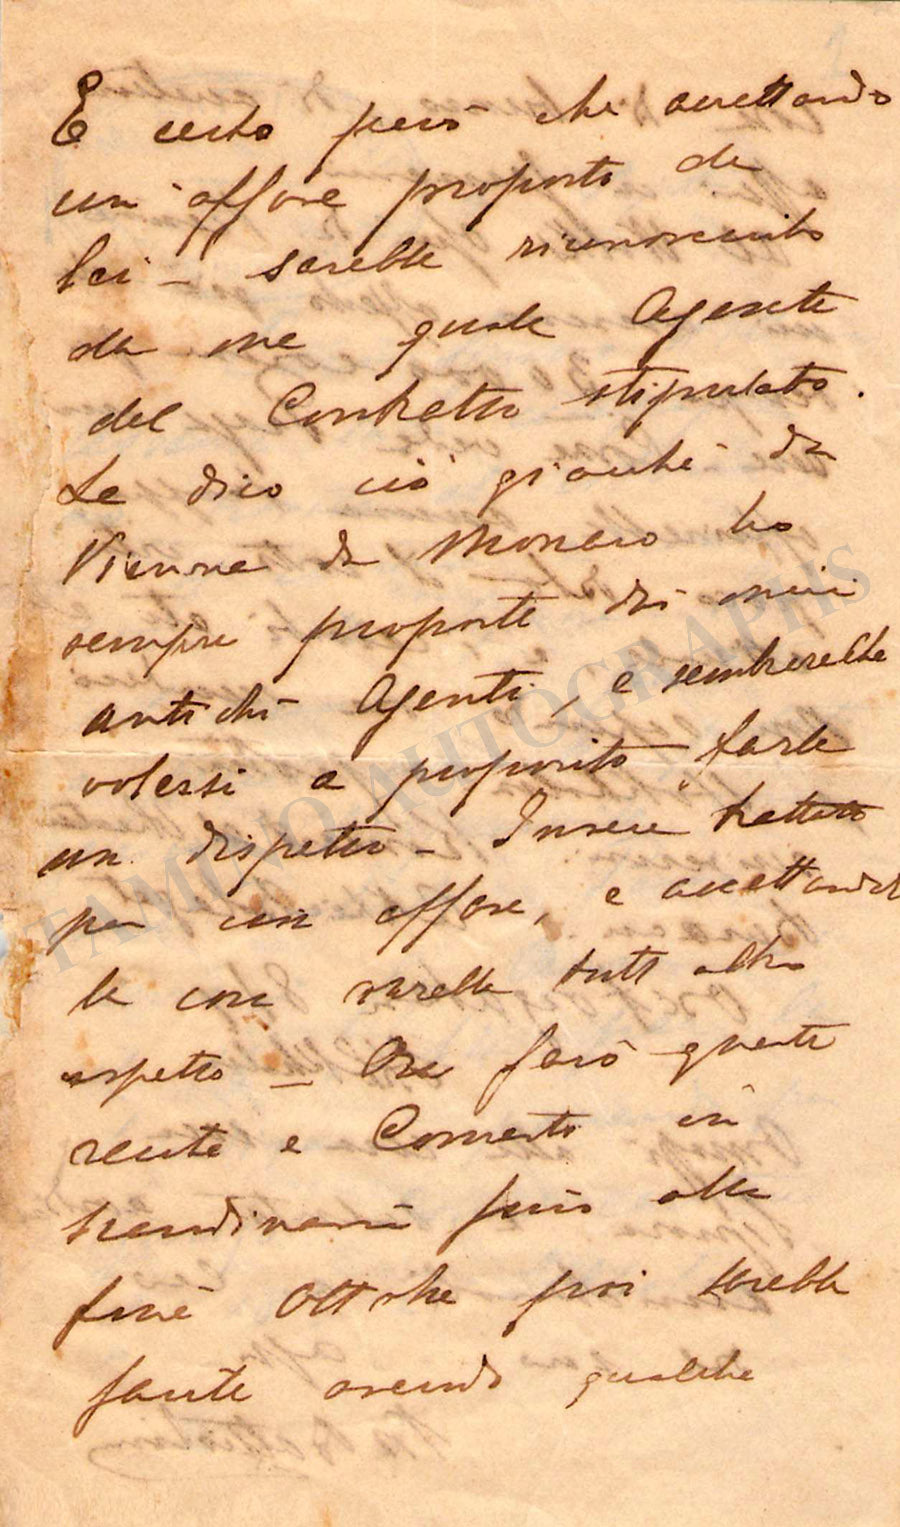 È certo però che accettando
un'affare proposto da
lei – sarebbe riconosciuto
da me quale Agente
del Contratto stipulato.
Le dico ciò giacchè da
Vienna da Monaco ho
sempre proposte dai miei
antichi Agenti, e sembrerebbe
volessi a proposito farle
un dispetto – Invece trattato
per un affare, e accettando
la cosa sarebbe tutt'altro
aspetto – Ora farò queste
recite e Concerto in
Scandinavia fino alla
fine Ottobre poi sarebbe
avendo qualche
TAMINO AUTOGRAPHS